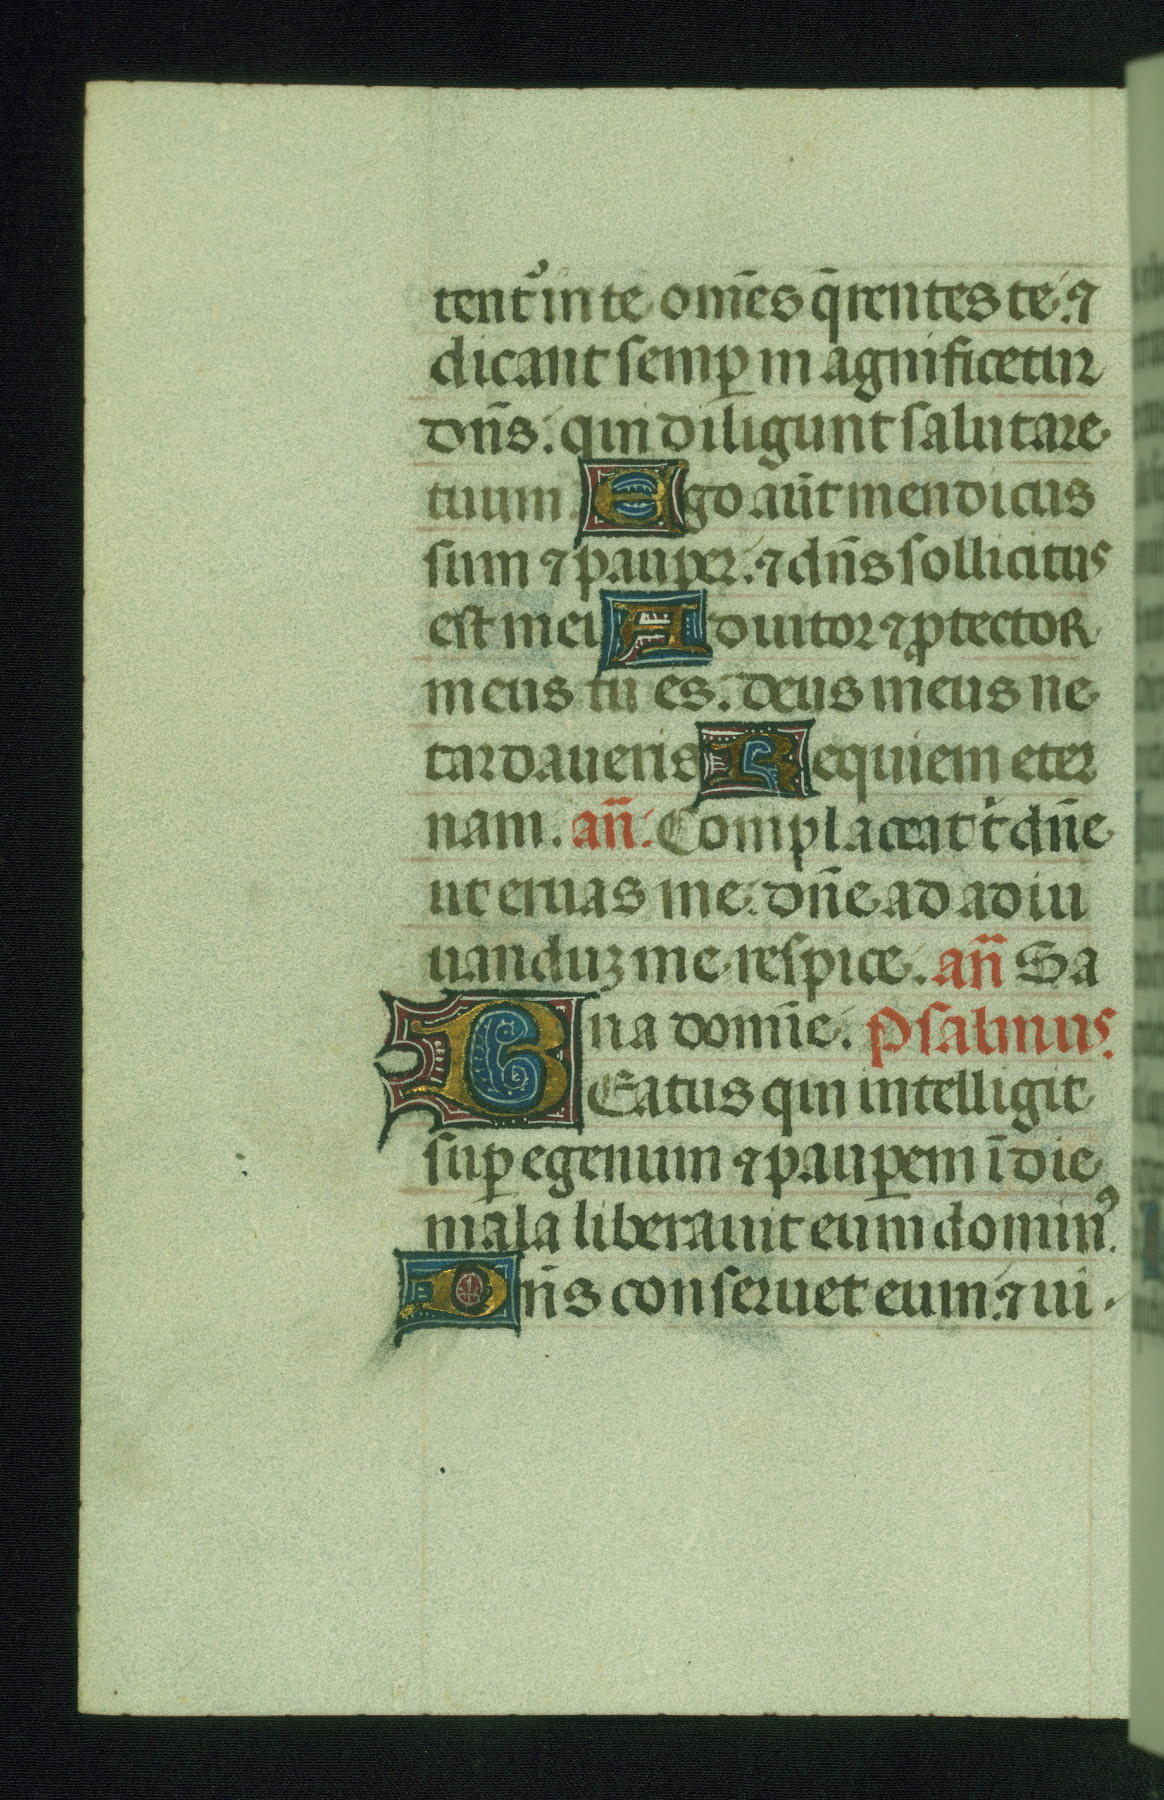 tent᷑ in te om̄es q̄rentes te: ⁊
dicant semꝑ magnificetur
dn̄s: qui diligunt salutare
tuum. Ego aūt mendicus
sum ⁊ pauper: ⁊ dn̄s sollicitus
est mei Adiutor ⁊ ꝓtector
meus tu es: deus meus ne
tardaueris Requiem eter
nam. an̄: Complaceat t̍ dn̄e
ut eruas me: dn̄e ad adiu
uanduꝫ me respice. an̄ Sa
na domīe. Psalmus.
BEatus qui intelligit
suꝑ egenum ⁊ pauꝑem ī die
mala liberauit eum dominꝰ.
Dn̄s conseruet eum: ⁊ ui